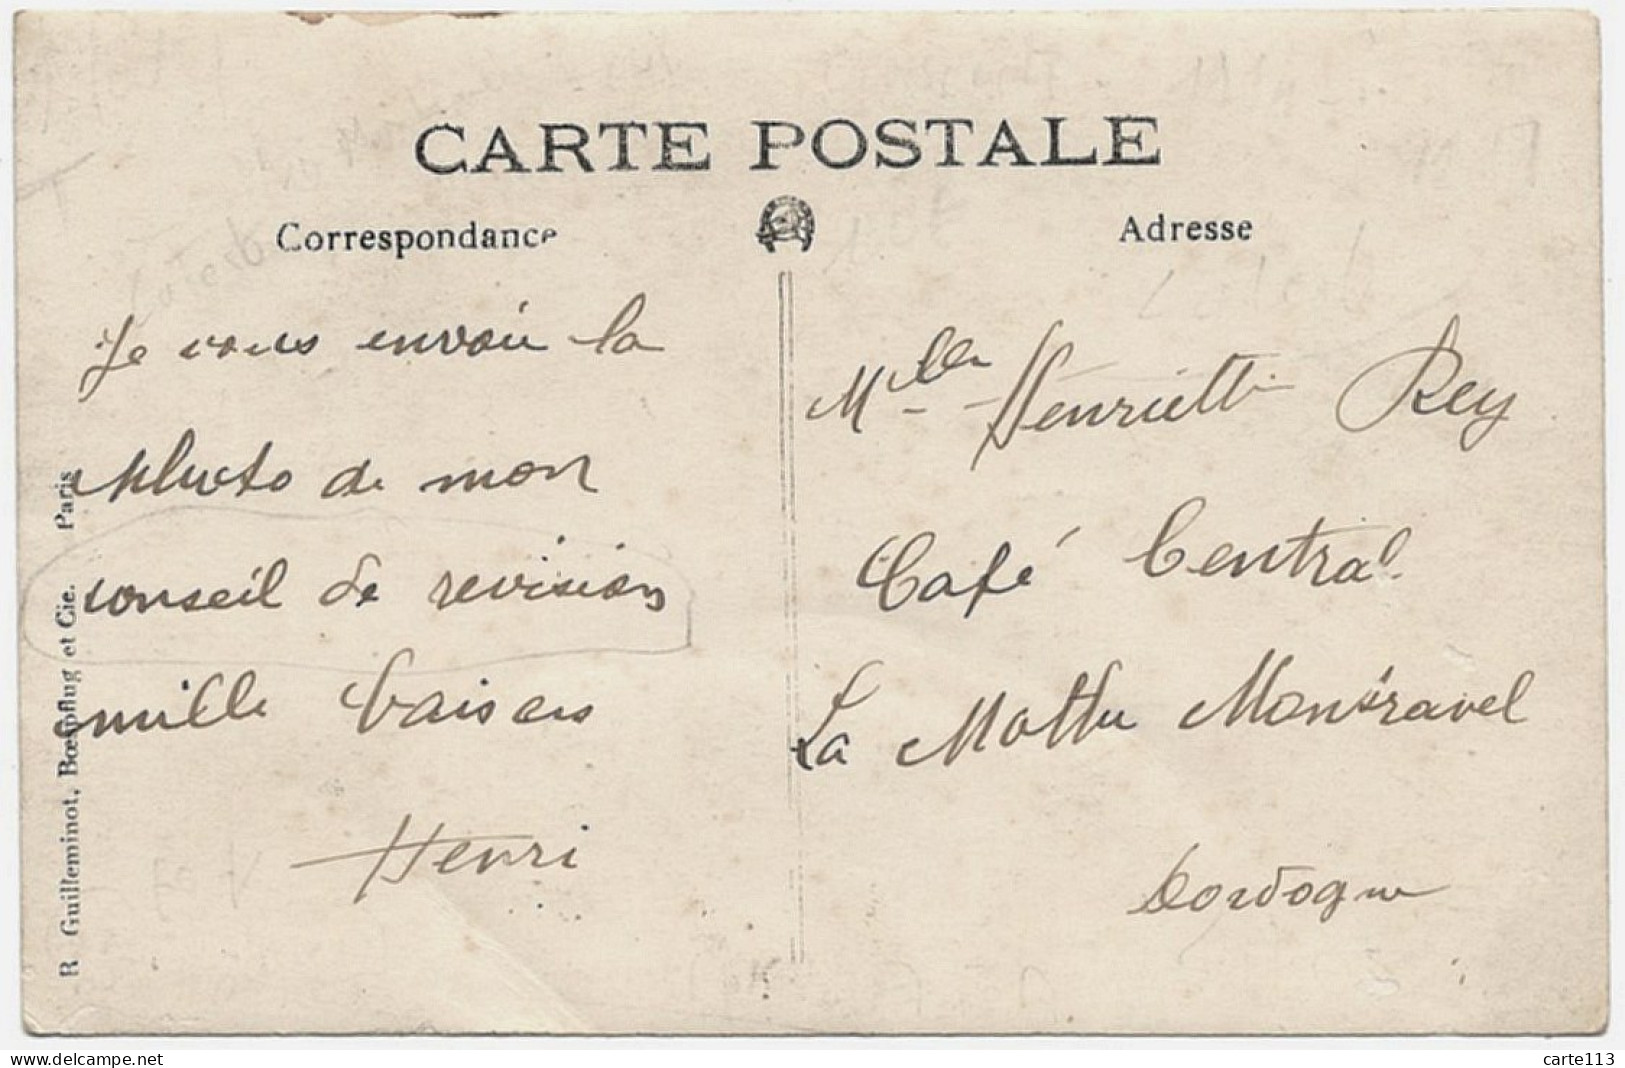 CARTE POSTALE
Correspondance
Adresse
Je vous envoie la
photo de mon
conseil de revision
mille baisers
Henri
Mlle Henriette Rey
Café Central
La Mothe Montravel
Dordogne
R Guilleminot, Bœspflug et Cie. Paris
carte113